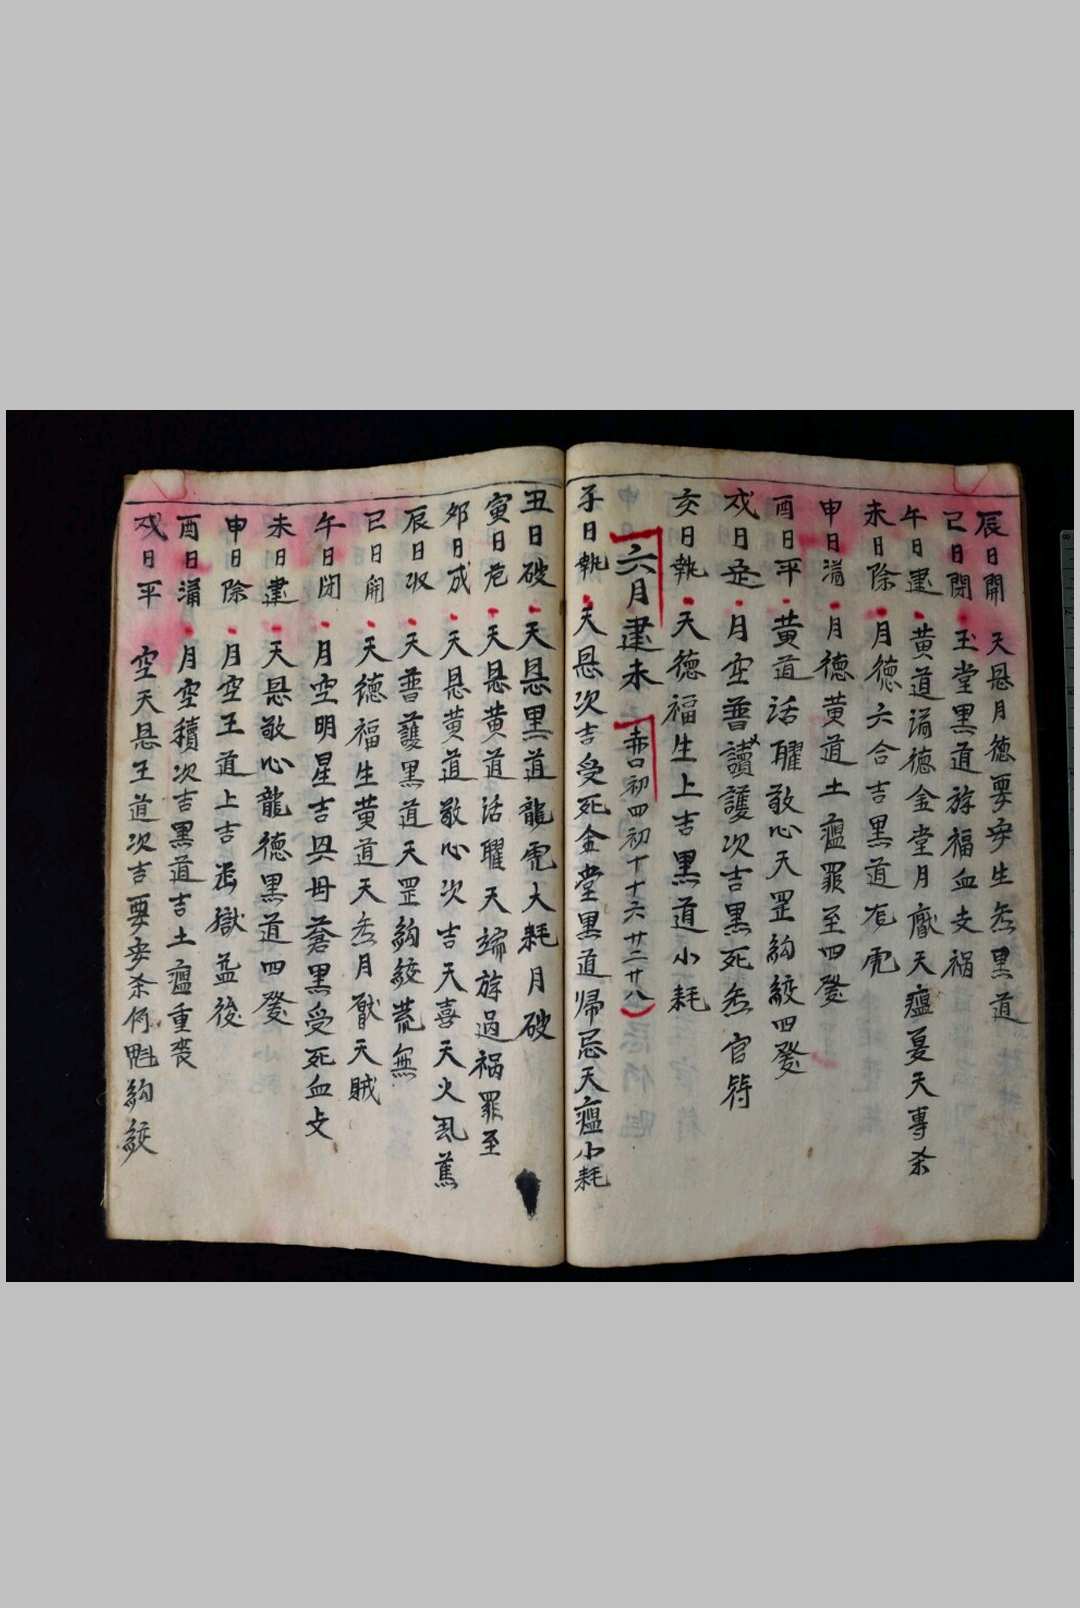 辰日開 天恩月德要安生炁黑道
己日閉 玉堂黑道游福血支禍
午日建 黃道滿德金堂月厭天瘟夏天專杀
未日除 月德六合吉黑道 虎
申日滿 月德黄道土瘟罪至四發
酉日平 黄道活曜敬心天罡絇絞四發
戍日定 月空普護次吉黑死炁官符
亥日執 天德福生上吉黑道小耗
六月建未 赤口初四初十十六廿二廿八
子日執 天恩次吉受死金堂黑道帰忌天瘟小耗
丑日破 天恩黑道龍虎大耗月破
寅日危 天恩黄道活曜天端游過祸罪至
夘日成 天恩黄道敬心次吉天喜天火乱蕉
辰日收 天普護黑道天罡絇絞荒無
已日開 天德福生黄道天炁月厭天賊
午日閉 月空明星吉其母蒼黑受死血支
未日建 天恩敬心龍德黑道四發
申日除 月空王道上吉 獄益後
酉日滿 月空續次吉黑道吉土瘟重喪
戍日平 空天恩王道次吉要安杀何魁絇絞